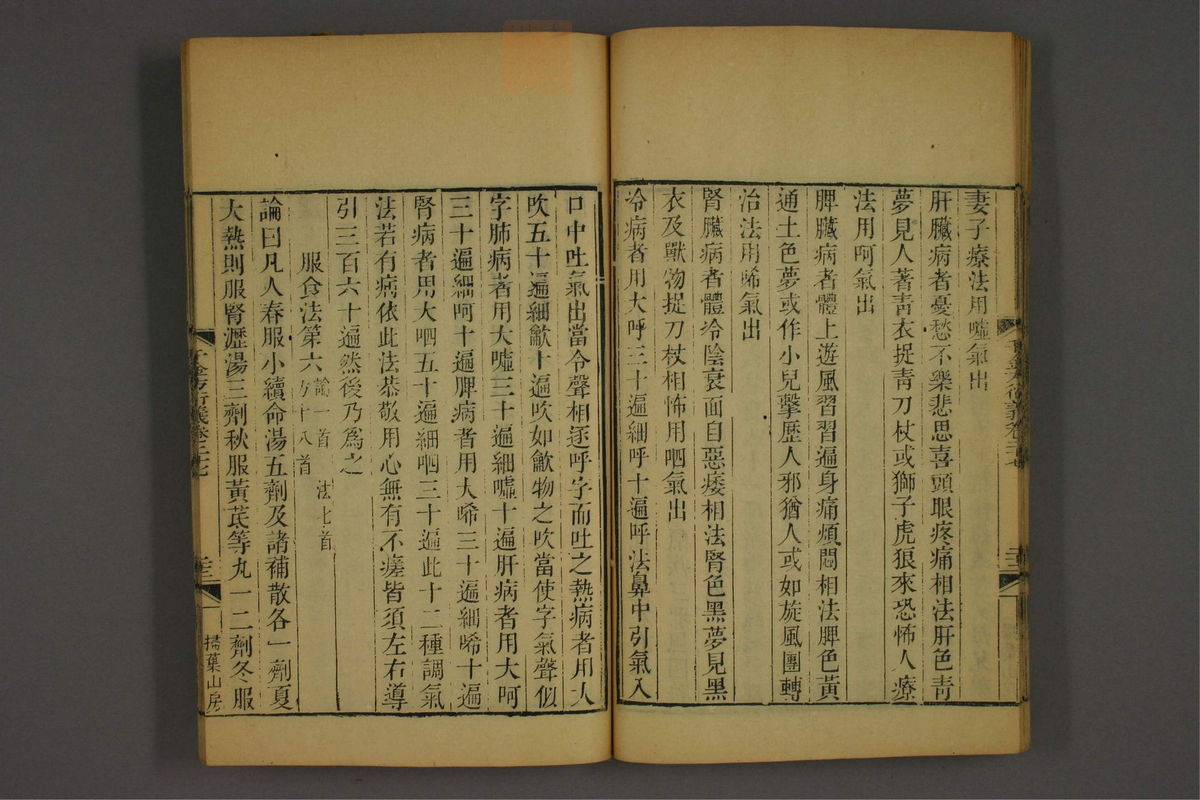 妻子療法用噓氣出
肝臟病者憂愁不樂悲思喜頭眼疼痛相法肝色青
夢見人著青衣捉青刀杖或獅子虎狼來恐怖人療
法用呵氣出
脾臟病者體上遊風習習遍身痛煩悶相法脾色黃
通土色夢或作小兒擊歷人邪猶人或如旋風團轉
治法用唏氣出
腎臟病者體冷陰衰面目惡痿相法腎色黑夢見黑
衣及獸物捉刀杖相怖用呬氣出
冷病者用大呼三十遍細呼十遍呼法鼻中引氣入
口中吐氣出當令聲相逐呼字而吐之熱病者用大
吹五十遍細歙十遍吹如歙物之吹當使字氣聲似
字肺病者用大噓三十遍細噓十遍肝病者用大呵
三十遍細呵十遍脾病者用大唏三十遍細唏十遍
腎病者用大呬五十遍細呬三十遍此十二種調氣
法若有病依此法恭敬用心無有不瘥皆須左右導
引三百六十遍然後乃為之
服食法第六 論一首 法七首 方十八首
論曰凡人春服小續命湯五劑及諸補散各一劑夏
大熱則服腎瀝湯三劑秋服黃芪等丸一二劑冬服
千金方衍義卷二十七
掃葉山房